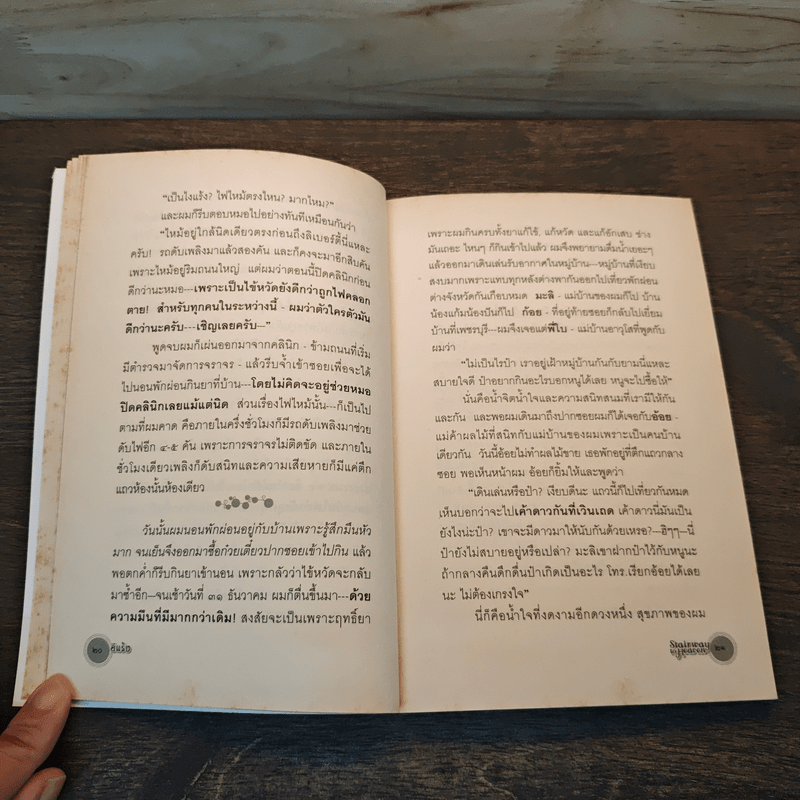 "เป็นไงแร้ง? ไฟไหม้ตรงไหน? มากไหม?"
และผมก็รีบตอบหมอไปอย่างทันทีเหมือนกันว่า
"ไหม้อยู่ใกล้นิดเดียวตรงก่อนถึงลิเบอร์ตี้นี่แหละ
ครับ! รถดับเพลิงมาแล้วสองคัน และก็คงจะมาอีกสิบคัน
เพราะไหม้อยู่ริมถนนใหญ่ แต่ผมว่าตอนนี้ปิดคลินิกก่อน
ดีกว่านะหมอ---เพราะเป็นไข้หวัดยังดีกว่าถูกไฟคลอก
ตาย! สำหรับทุกคนในระหว่างนี้ - ผมว่าตัวใครตัวมัน
ดีกว่านะครับ---เชิญเลยครับ---"
พูดจบผมก็เผ่นออกมาจากคลินิก - ข้ามถนนที่เริ่ม
มีตำรวจมาจัดการจราจร - แล้วรีบจ้ำเข้าซอยเพื่อจะได้
ไปนอนพักผ่อนกินยาที่บ้าน---โดยไม่คิดจะอยู่ช่วยหมอ
ปิดคลินิกเลยแม้แต่นิด ส่วนเรื่องไฟไหม้นั้น---ก็เป็นไป
ตามที่ผมคาด คือภายในครึ่งชั่วโมงก็มีรถดับเพลิงมาช่วย
ดับไฟอีก ๔-๕ คัน เพราะการจราจรไม่ติดขัด และภายใน
ชั่วโมงเดียวเพลิงก็ดับสนิทและความเสียหายก็มีแค่ตึก
แถวห้องนั้นห้องเดียว
วันนั้นผมนอนพักผ่อนอยู่กับบ้านเพราะรู้สึกมึนหัว
มาก จนเย็นจึงออกมาซื้อก๋วยเตี๋ยวปากซอยเข้าไปกิน แล้ว
พอตกค่ำก็รีบกินยาเข้านอน เพราะกลัวว่าไข้หวัดจะกลับ
มาซ้ำอีก---จนเช้าวันที่ ๓๑ ธันวาคม ผมก็ตื่นขึ้นมา---ด้วย
ความมึนที่มีมากกว่าเดิม! สงสัยจะเป็นเพราะฤทธิ์ยา
๒๐
เพราะผมกินครบทั้งยาแก้ไข้, แก้หวัด และแก้อักเสบ ช่าง
มันเถอะ ไหนๆ ก็กินเข้าไปแล้ว ผมจึงพยายามดื่มน้ำเยอะๆ
แล้วออกมาเดินเล่นรับอากาศในหมู่บ้าน---หมู่บ้านที่เงียบ
สงบมากเพราะแทบทุกหลังต่างพากันออกไปเที่ยวพักผ่อน
ต่างจังหวัดกันเกือบหมด มะลิ - แม่บ้านของผมก็ไป บ้าน
น้องแก้มน้องปันก็ไป ก้อย - ที่อยู่ท้ายซอยก็กลับไปเยี่ยม
บ้านที่เพชรบุรี---ผมจึงเจอแต่พี่ใบ - แม่บ้านอาวุโสที่พูดกับ
ผมว่า
"ไม่เป็นไรป๋า เราอยู่เฝ้าหมู่บ้านกันกับยามนี่แหละ
สบายใจดี ป๋าอยากกินอะไรบอกหนูได้เลย หนูจะไปซื้อให้"
นั่นคือน้ำจิตน้ำใจและความสนิทสนมที่เรามีให้กัน
และกัน และพอผมเดินมาถึงปากซอยผมก็ได้เจอกับอ้อย -
แม่ค้าผลไม้ที่สนิทกับแม่บ้านของผมเพราะเป็นคนบ้าน
เดียวกัน วันนี้อ้อยไม่ทำผลไม้ขาย เธอพักอยู่ที่ตึกแถวกลาง
ซอย พอเห็นหน้าผม อ้อยก็ยิ้มให้และพูดว่า
"เดินเล่นหรือป๋า? เงียบดีนะ แถวนี้ก็ไปเที่ยวกันหมด
เห็นบอกว่าจะไปเค้าดาวกันที่เวินเถด เค้าดาวนี่มันเป็น
ยังไงน่ะป๋า? เขาจะมีดาวมาให้นับกันด้วยเหรอ?---ฮิๆๆ---นี่
ป๋ายังไม่สบายอยู่หรือเปล่า? มะลิเขาฝากป๋าไว้กับหนูนะ
ถ้ากลางคืนดึกดื่นป๋าเกิดเป็นอะไร โทร.เรียกอ้อยได้เลย
นะ ไม่ต้องเกรงใจ"
นี่ก็คือน้ำใจที่งดงามอีกดวงหนึ่ง สุขภาพของผม
Stairway
to Heaven
๒๑